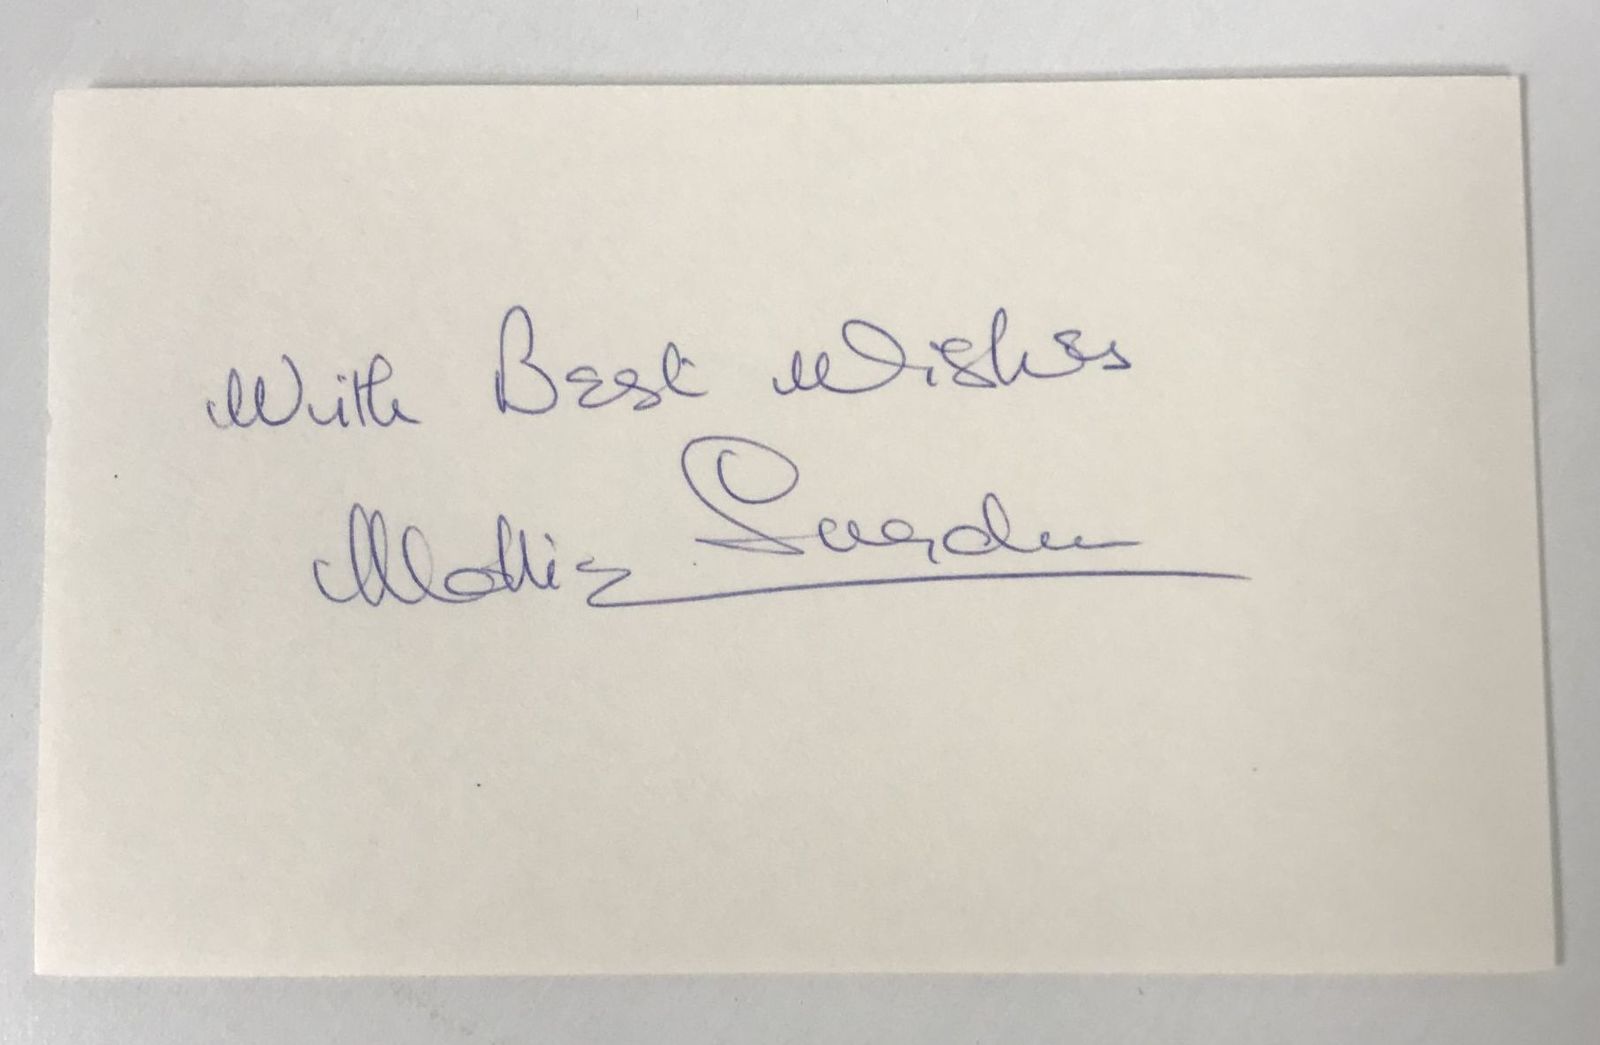 With Best Wishes
Mollie Sugden